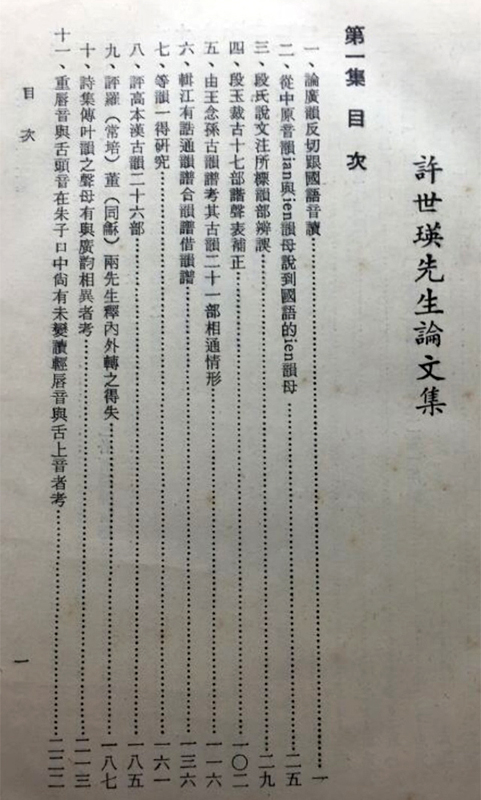 許世瑛先生論文集
第一集 目次
一、論廣韻反切跟國語音讀……………一
二、從中原音韻ian與ien韻母說到國語的ien韻母……………二五
三、段氏說文注所標韻部辨誤……………二九
四、段玉裁古十七部諧聲表補正……………一〇二
五、由王念孫古韻譜考其古韻二十一部相通情形……………一一六
六、輯江有誥通韻譜合韻譜借韻譜……………一三六
七、等韻一得硏究……………一六一
八、評高本漢古韻二十六部……………一八五
九、評羅（常培）董（同龢）兩先生釋內外轉之得失……………一八七
十、詩集傳叶韻之聲母有與廣韵相異者考……………二一三
十一、重唇音與舌頭音在朱子口中尙有未變讀輕唇音與舌上音者考……………二二二
目次
一